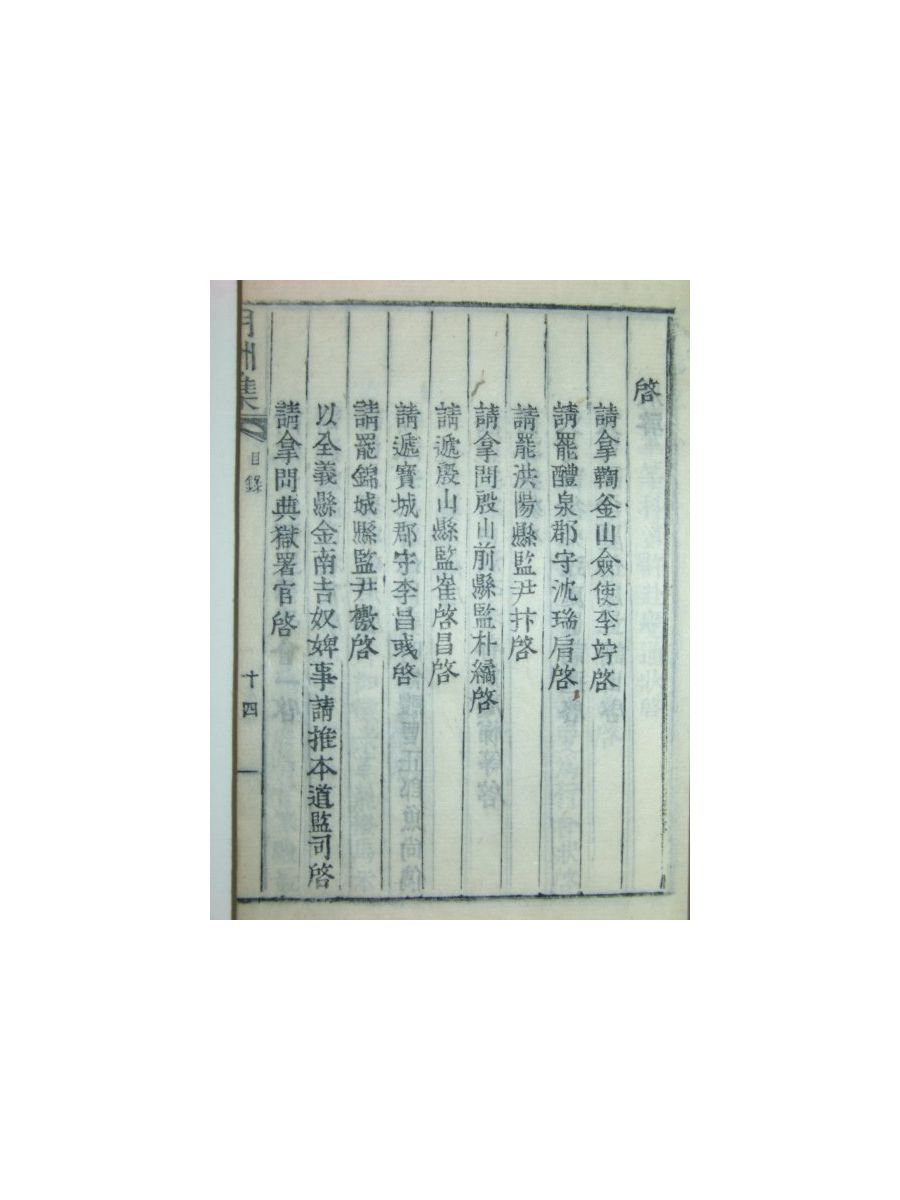 啓
請拿鞫釜山僉使李竚啓
請罷醴泉郡守沈瑞肩啓
請罷洪陽縣監尹抃啓
請拿問殷山前縣監朴繘啓
請遞殷山縣監崔啓昌啓
請遞寶城郡守李昌彧啓
請罷錦城縣監尹檄啓
以全義縣金南吉奴婢事請推本道監司啓
請拿問典獄署官啓
月洲集
目錄
十四